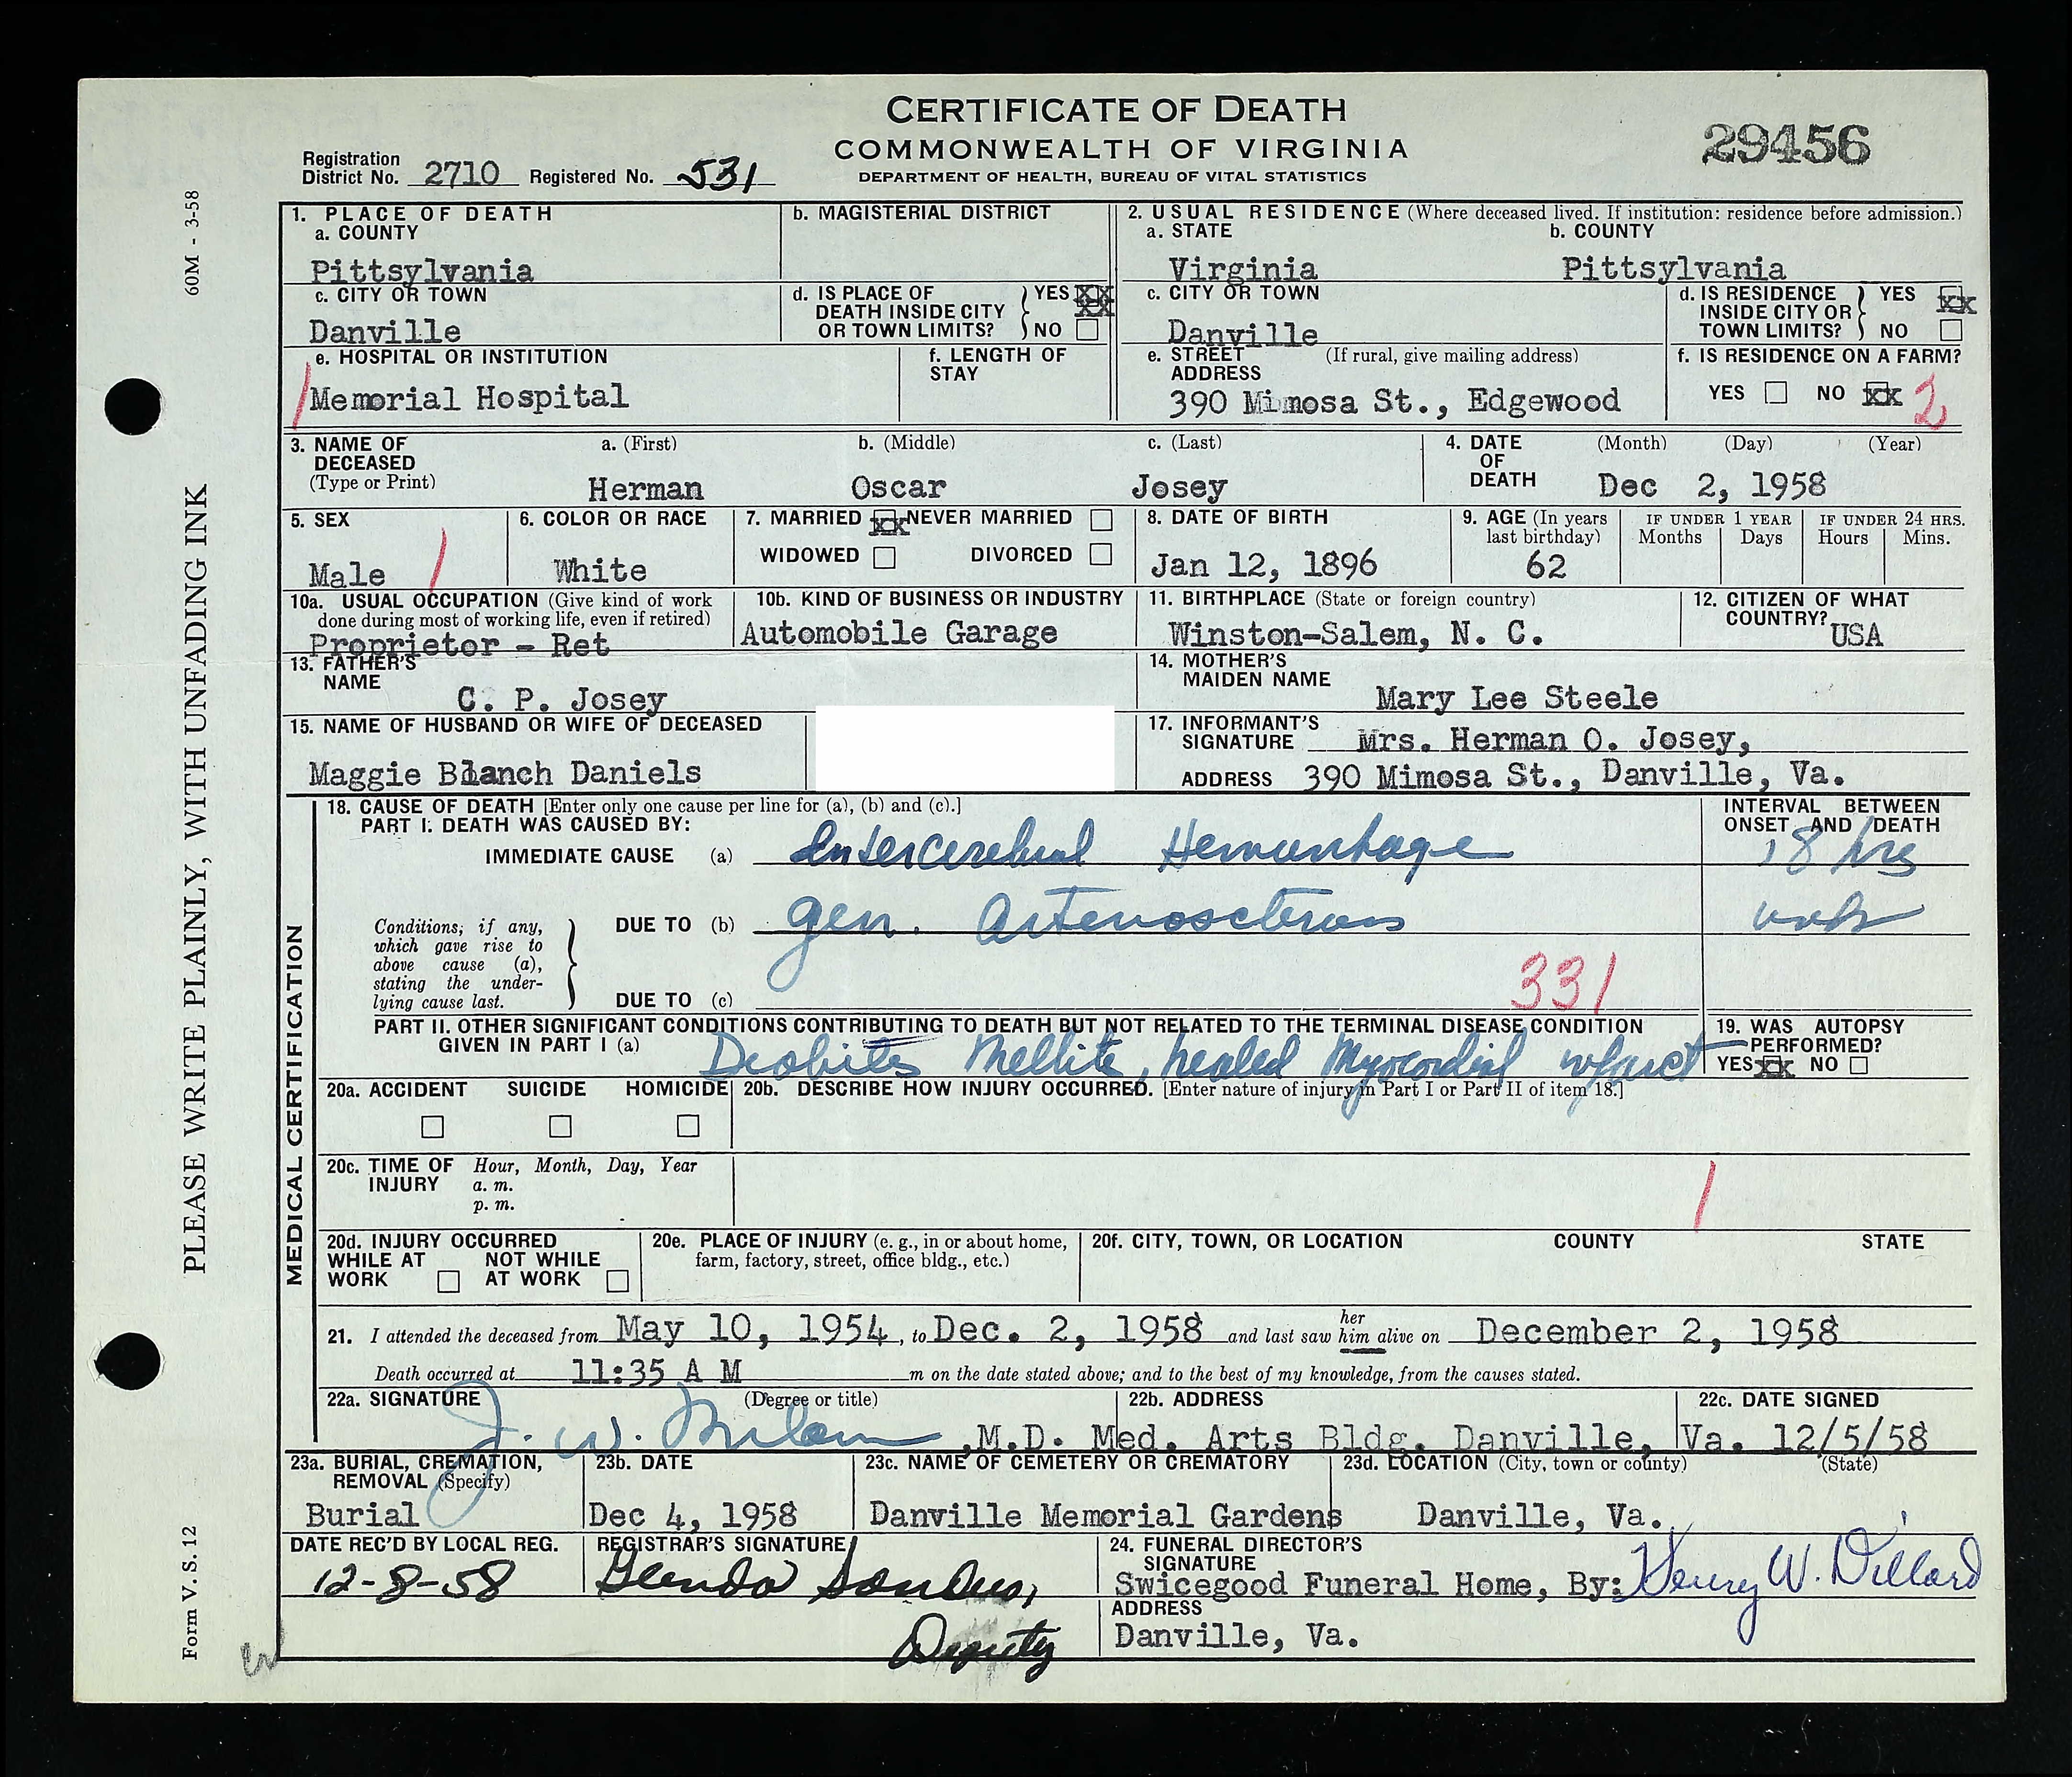 CERTIFICATE OF DEATH
COMMONWEALTH OF VIRGINIA
DEPARTMENT OF HEALTH, BUREAU OF VITAL STATISTICS
29456
Registration District No. 2710 Registered No. 531
60M - 3-58
PLEASE WRITE PLAINLY, WITH UNFADING INK
Form V. S. 12
1. PLACE OF DEATH
a. COUNTY
Pittsylvania
b. MAGISTERIAL DISTRICT
2. USUAL RESIDENCE (Where deceased lived. If institution: residence before admission.)
a. STATE b. COUNTY
Virginia Pittsylvania
c. CITY OR TOWN
Danville
d. IS PLACE OF DEATH INSIDE CITY OR TOWN LIMITS? YES XX NO
c. CITY OR TOWN
Danville
d. IS RESIDENCE INSIDE CITY OR TOWN LIMITS? YES XX NO
e. HOSPITAL OR INSTITUTION
1 Memorial Hospital
f. LENGTH OF STAY
e. STREET ADDRESS (If rural, give mailing address)
390 Mimosa St., Edgewood
f. IS RESIDENCE ON A FARM?
YES NO XX 2
3. NAME OF DECEASED (Type or Print)
a. (First) b. (Middle) c. (Last)
Herman Oscar Josey
4. DATE OF DEATH (Month) (Day) (Year)
Dec 2, 1958
5. SEX
Male 1
6. COLOR OR RACE
White
7. MARRIED XX NEVER MARRIED
WIDOWED DIVORCED
8. DATE OF BIRTH
Jan 12, 1896
9. AGE (In years last birthday)
62
IF UNDER 1 YEAR
Months Days
IF UNDER 24 HRS.
Hours Mins.
10a. USUAL OCCUPATION (Give kind of work done during most of working life, even if retired)
Proprietor - Ret
10b. KIND OF BUSINESS OR INDUSTRY
Automobile Garage
11. BIRTHPLACE (State or foreign country)
Winston-Salem, N. C.
12. CITIZEN OF WHAT COUNTRY?
USA
13. FATHER'S NAME
C. P. Josey
14. MOTHER'S MAIDEN NAME
Mary Lee Steele
15. NAME OF HUSBAND OR WIFE OF DECEASED
Maggie Blanch Daniels
17. INFORMANT'S SIGNATURE Mrs. Herman O. Josey,
ADDRESS 390 Mimosa St., Danville, Va.
MEDICAL CERTIFICATION
18. CAUSE OF DEATH [Enter only one cause per line for (a), (b) and (c).]
PART I. DEATH WAS CAUSED BY:
INTERVAL BETWEEN ONSET AND DEATH
IMMEDIATE CAUSE (a) Intercerebral Hemorrhage 18 hrs
Conditions, if any, which gave rise to above cause (a), stating the underlying cause last.
DUE TO (b) gen. Arteriosclerosis
DUE TO (c)
331
PART II. OTHER SIGNIFICANT CONDITIONS CONTRIBUTING TO DEATH BUT NOT RELATED TO THE TERMINAL DISEASE CONDITION GIVEN IN PART I (a)
Diabites Mellite, healed Myocordial infarct
19. WAS AUTOPSY PERFORMED?
YES XX NO
20a. ACCIDENT SUICIDE HOMICIDE
20b. DESCRIBE HOW INJURY OCCURRED. [Enter nature of injury in Part I or Part II of item 18.]
20c. TIME OF INJURY Hour, Month, Day, Year
a. m.
p. m.
1
20d. INJURY OCCURRED
WHILE AT WORK NOT WHILE AT WORK
20e. PLACE OF INJURY (e. g., in or about home, farm, factory, street, office bldg., etc.)
20f. CITY, TOWN, OR LOCATION COUNTY STATE
21. I attended the deceased from May 10, 1954, to Dec. 2, 1958 and last saw her him alive on December 2, 1958
Death occurred at 11:35 A M m on the date stated above; and to the best of my knowledge, from the causes stated.
22a. SIGNATURE (Degree or title)
J. W. Milam, M.D.
22b. ADDRESS
Med. Arts Bldg. Danville, Va.
22c. DATE SIGNED
12/5/58
23a. BURIAL, CREMATION, REMOVAL (Specify)
Burial
23b. DATE
Dec 4, 1958
23c. NAME OF CEMETERY OR CREMATORY
Danville Memorial Gardens
23d. LOCATION (City, town or county) (State)
Danville, Va.
DATE REC'D BY LOCAL REG.
12-8-58
REGISTRAR'S SIGNATURE
Glenda Sanders,
Deputy
24. FUNERAL DIRECTOR'S SIGNATURE
Swicegood Funeral Home, By: Henry W. Dillard
ADDRESS
Danville, Va.